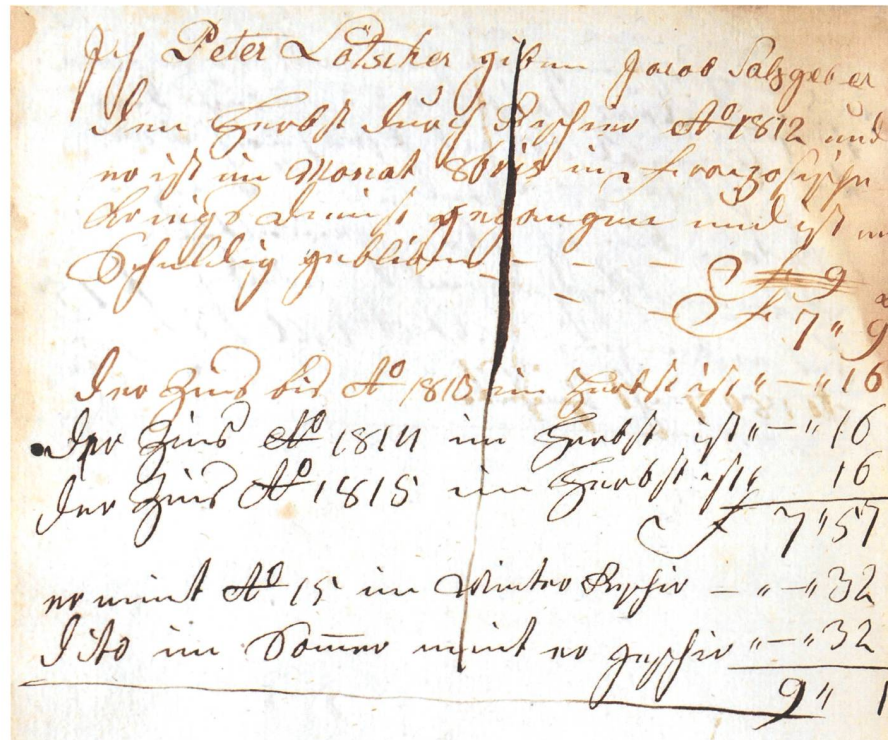 Ich Peter Lötscher giben Jacob Salzgeber
dem Herbst durch Gschier Aº 1812 und
er ist im Monat 8bris in französische
Kriegs dienst gegangen und ist
Schuldig gebliben - - - - f 9
- - f 7 " 9
der Zins bis Aº 1813 im Herbst ist " — " 16
der Zins Aº 1814 im Herbst ist " — " 16
der Zins Aº 1815 im Herbst ist " 16
f 7 " 57
er nimt Aº 15 im Winter Gschir — " — " 32
dito im Som̄er nimt er gschir " — " 32
9 " 1